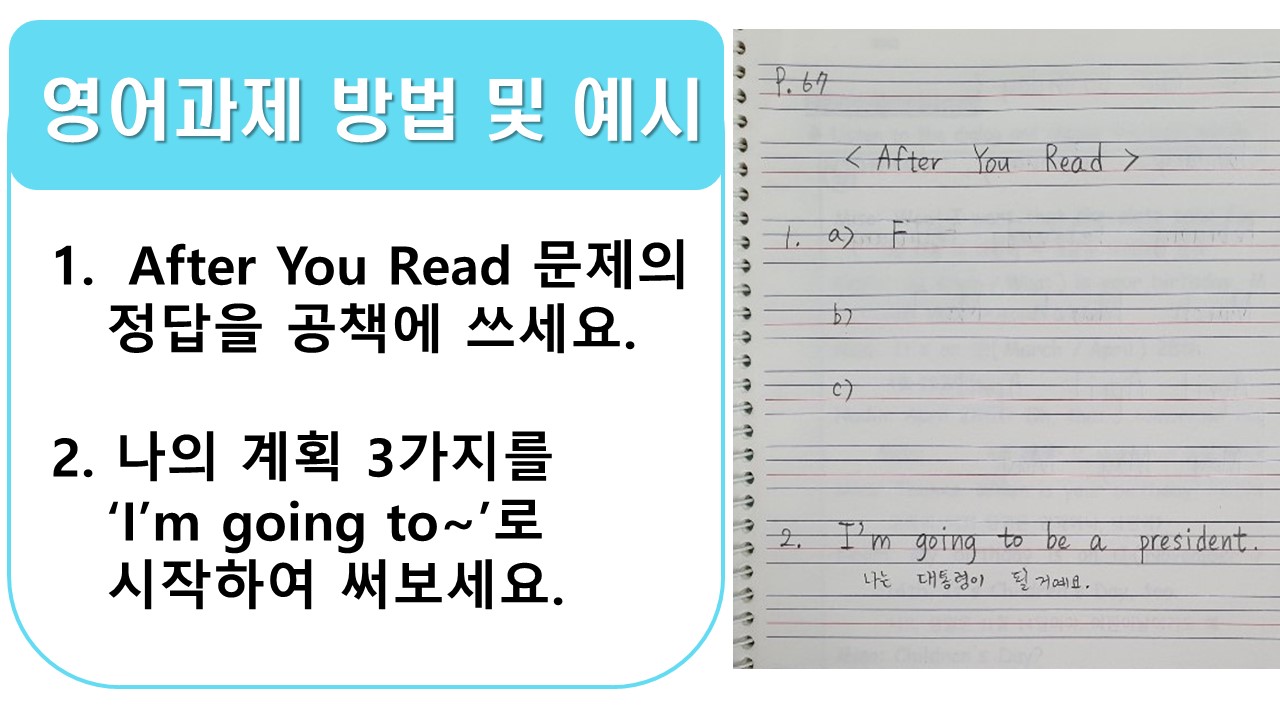 영어과제 방법 및 예시
1. After You Read 문제의
정답을 공책에 쓰세요.
2. 나의 계획 3가지를
‘I’m going to~’로
시작하여 써보세요.
P. 67
< After You Read >
1. a) F
b)
c)
2. I'm going to be a president.
나는 대통령이 될 거예요.